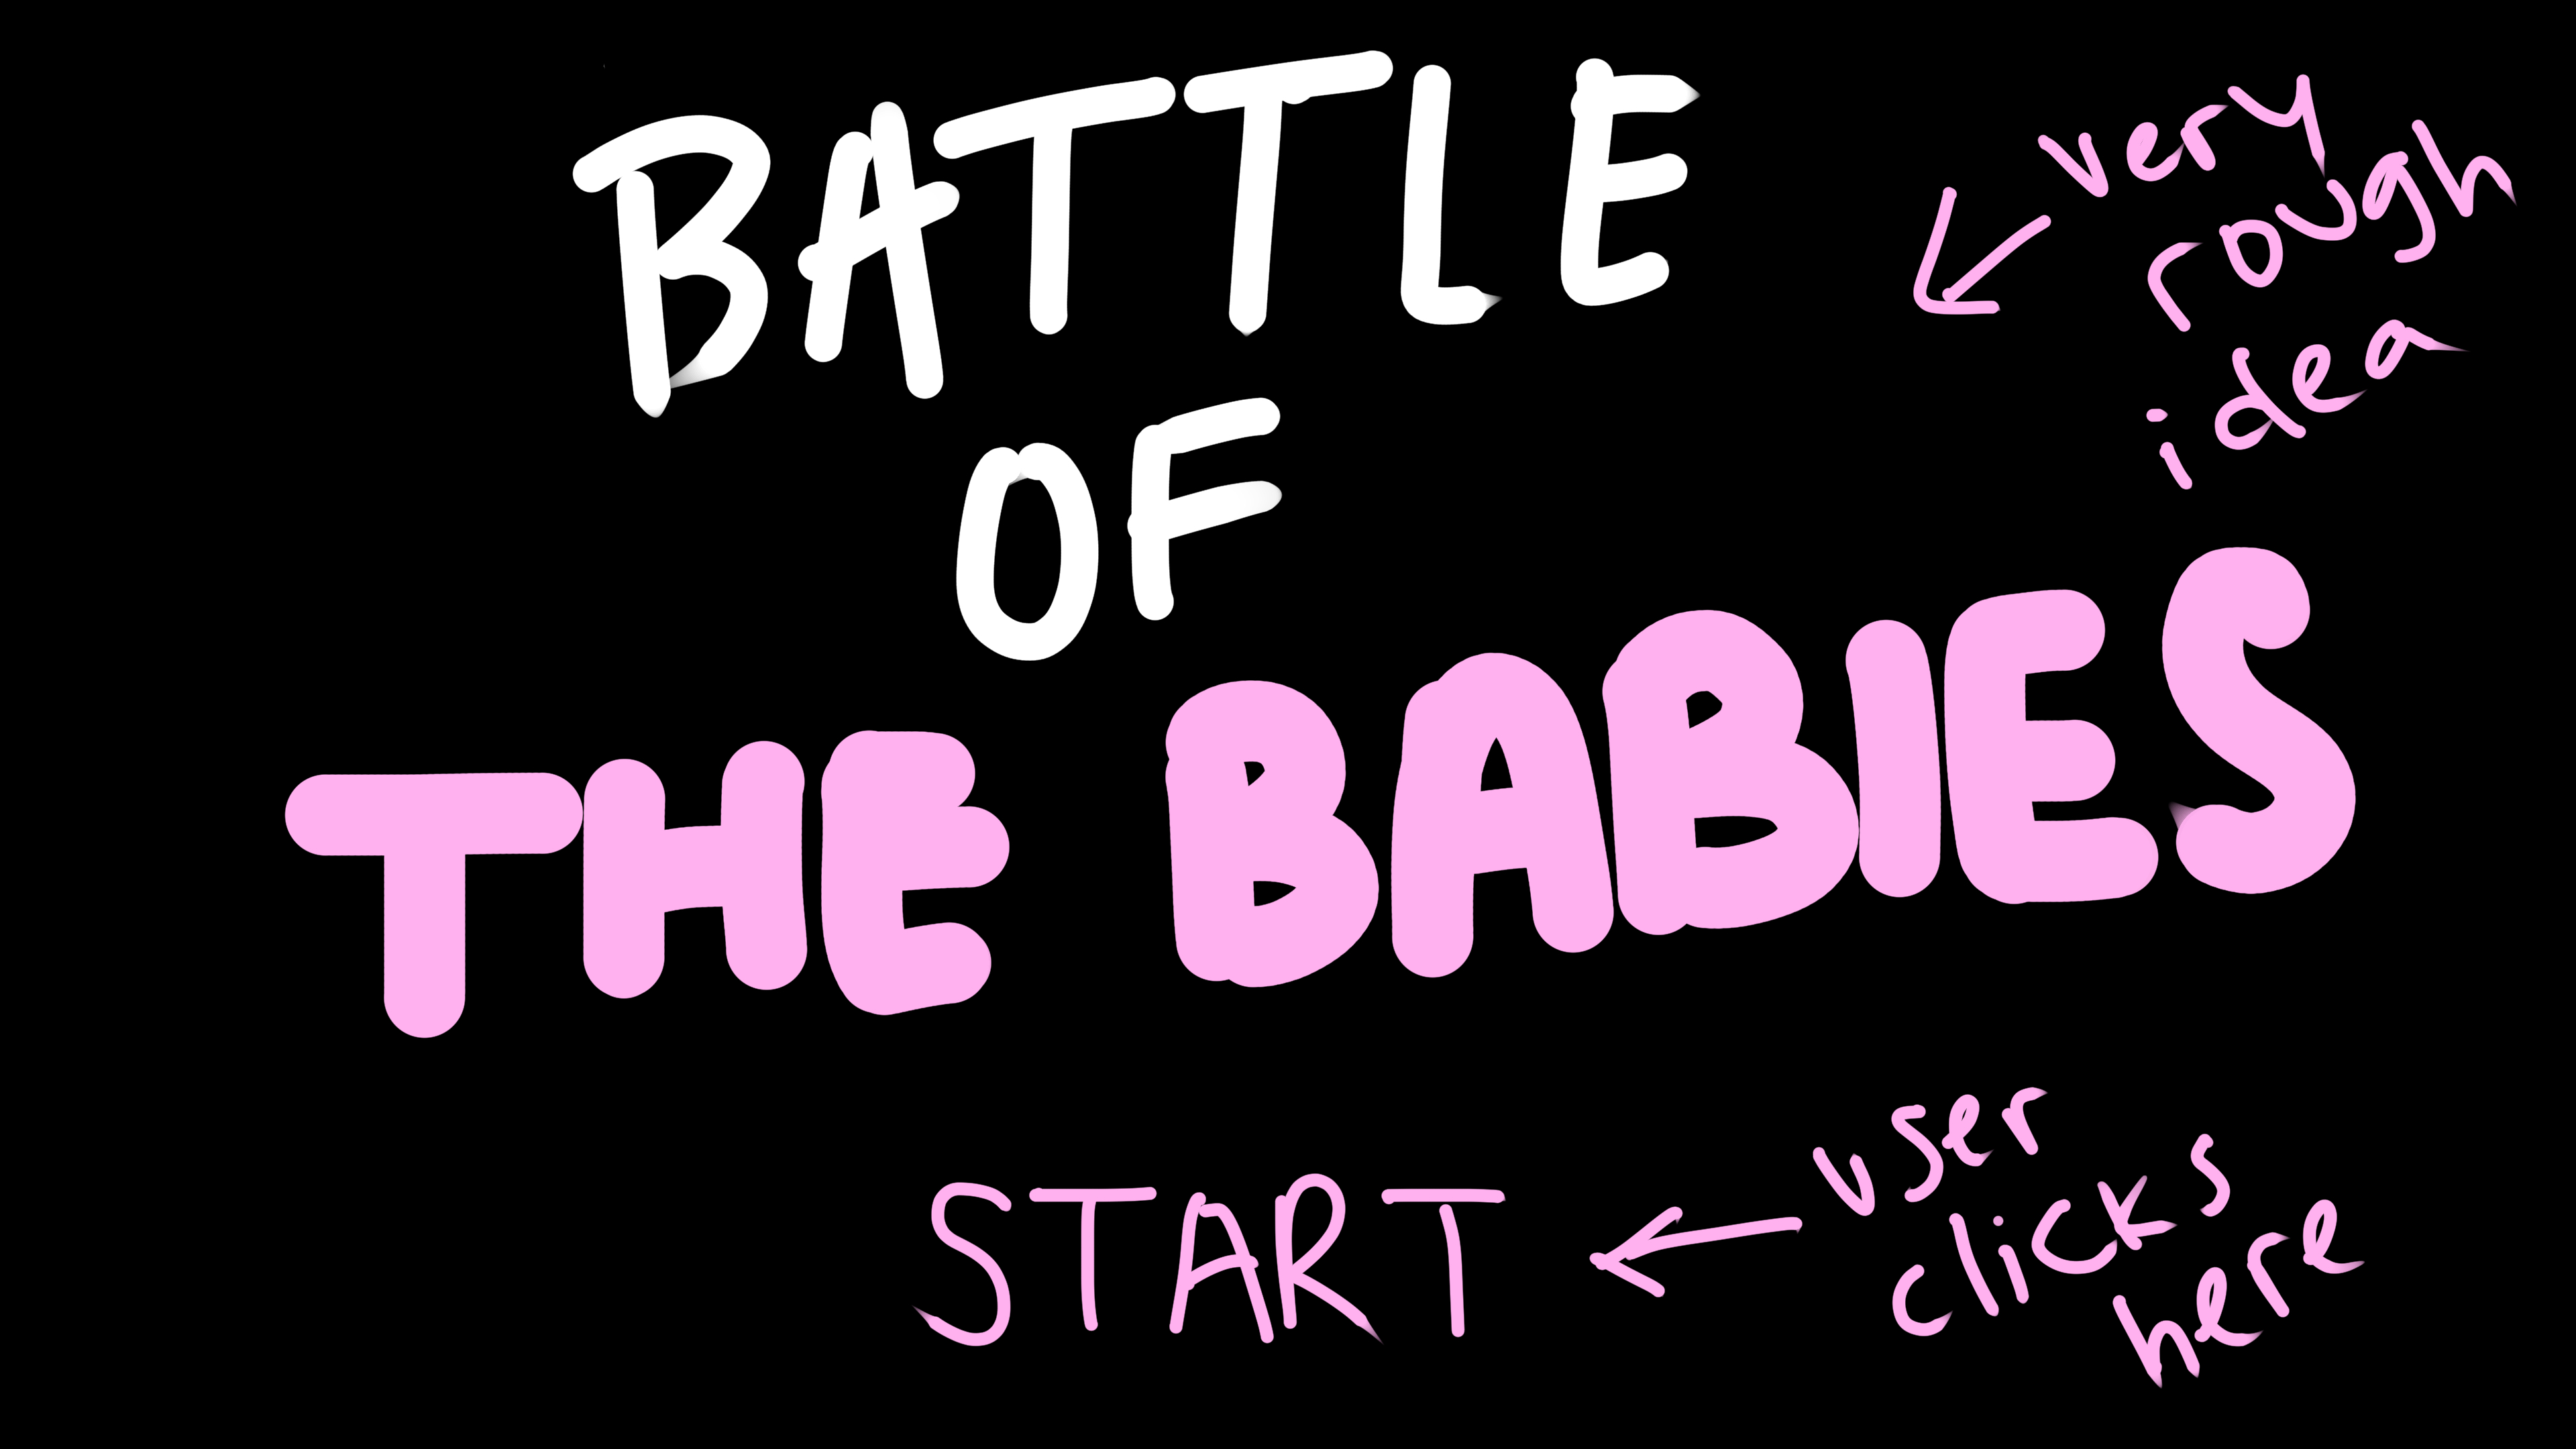 BATTLE
OF
THE BABIES
very
rough
idea
START
user
clicks
here